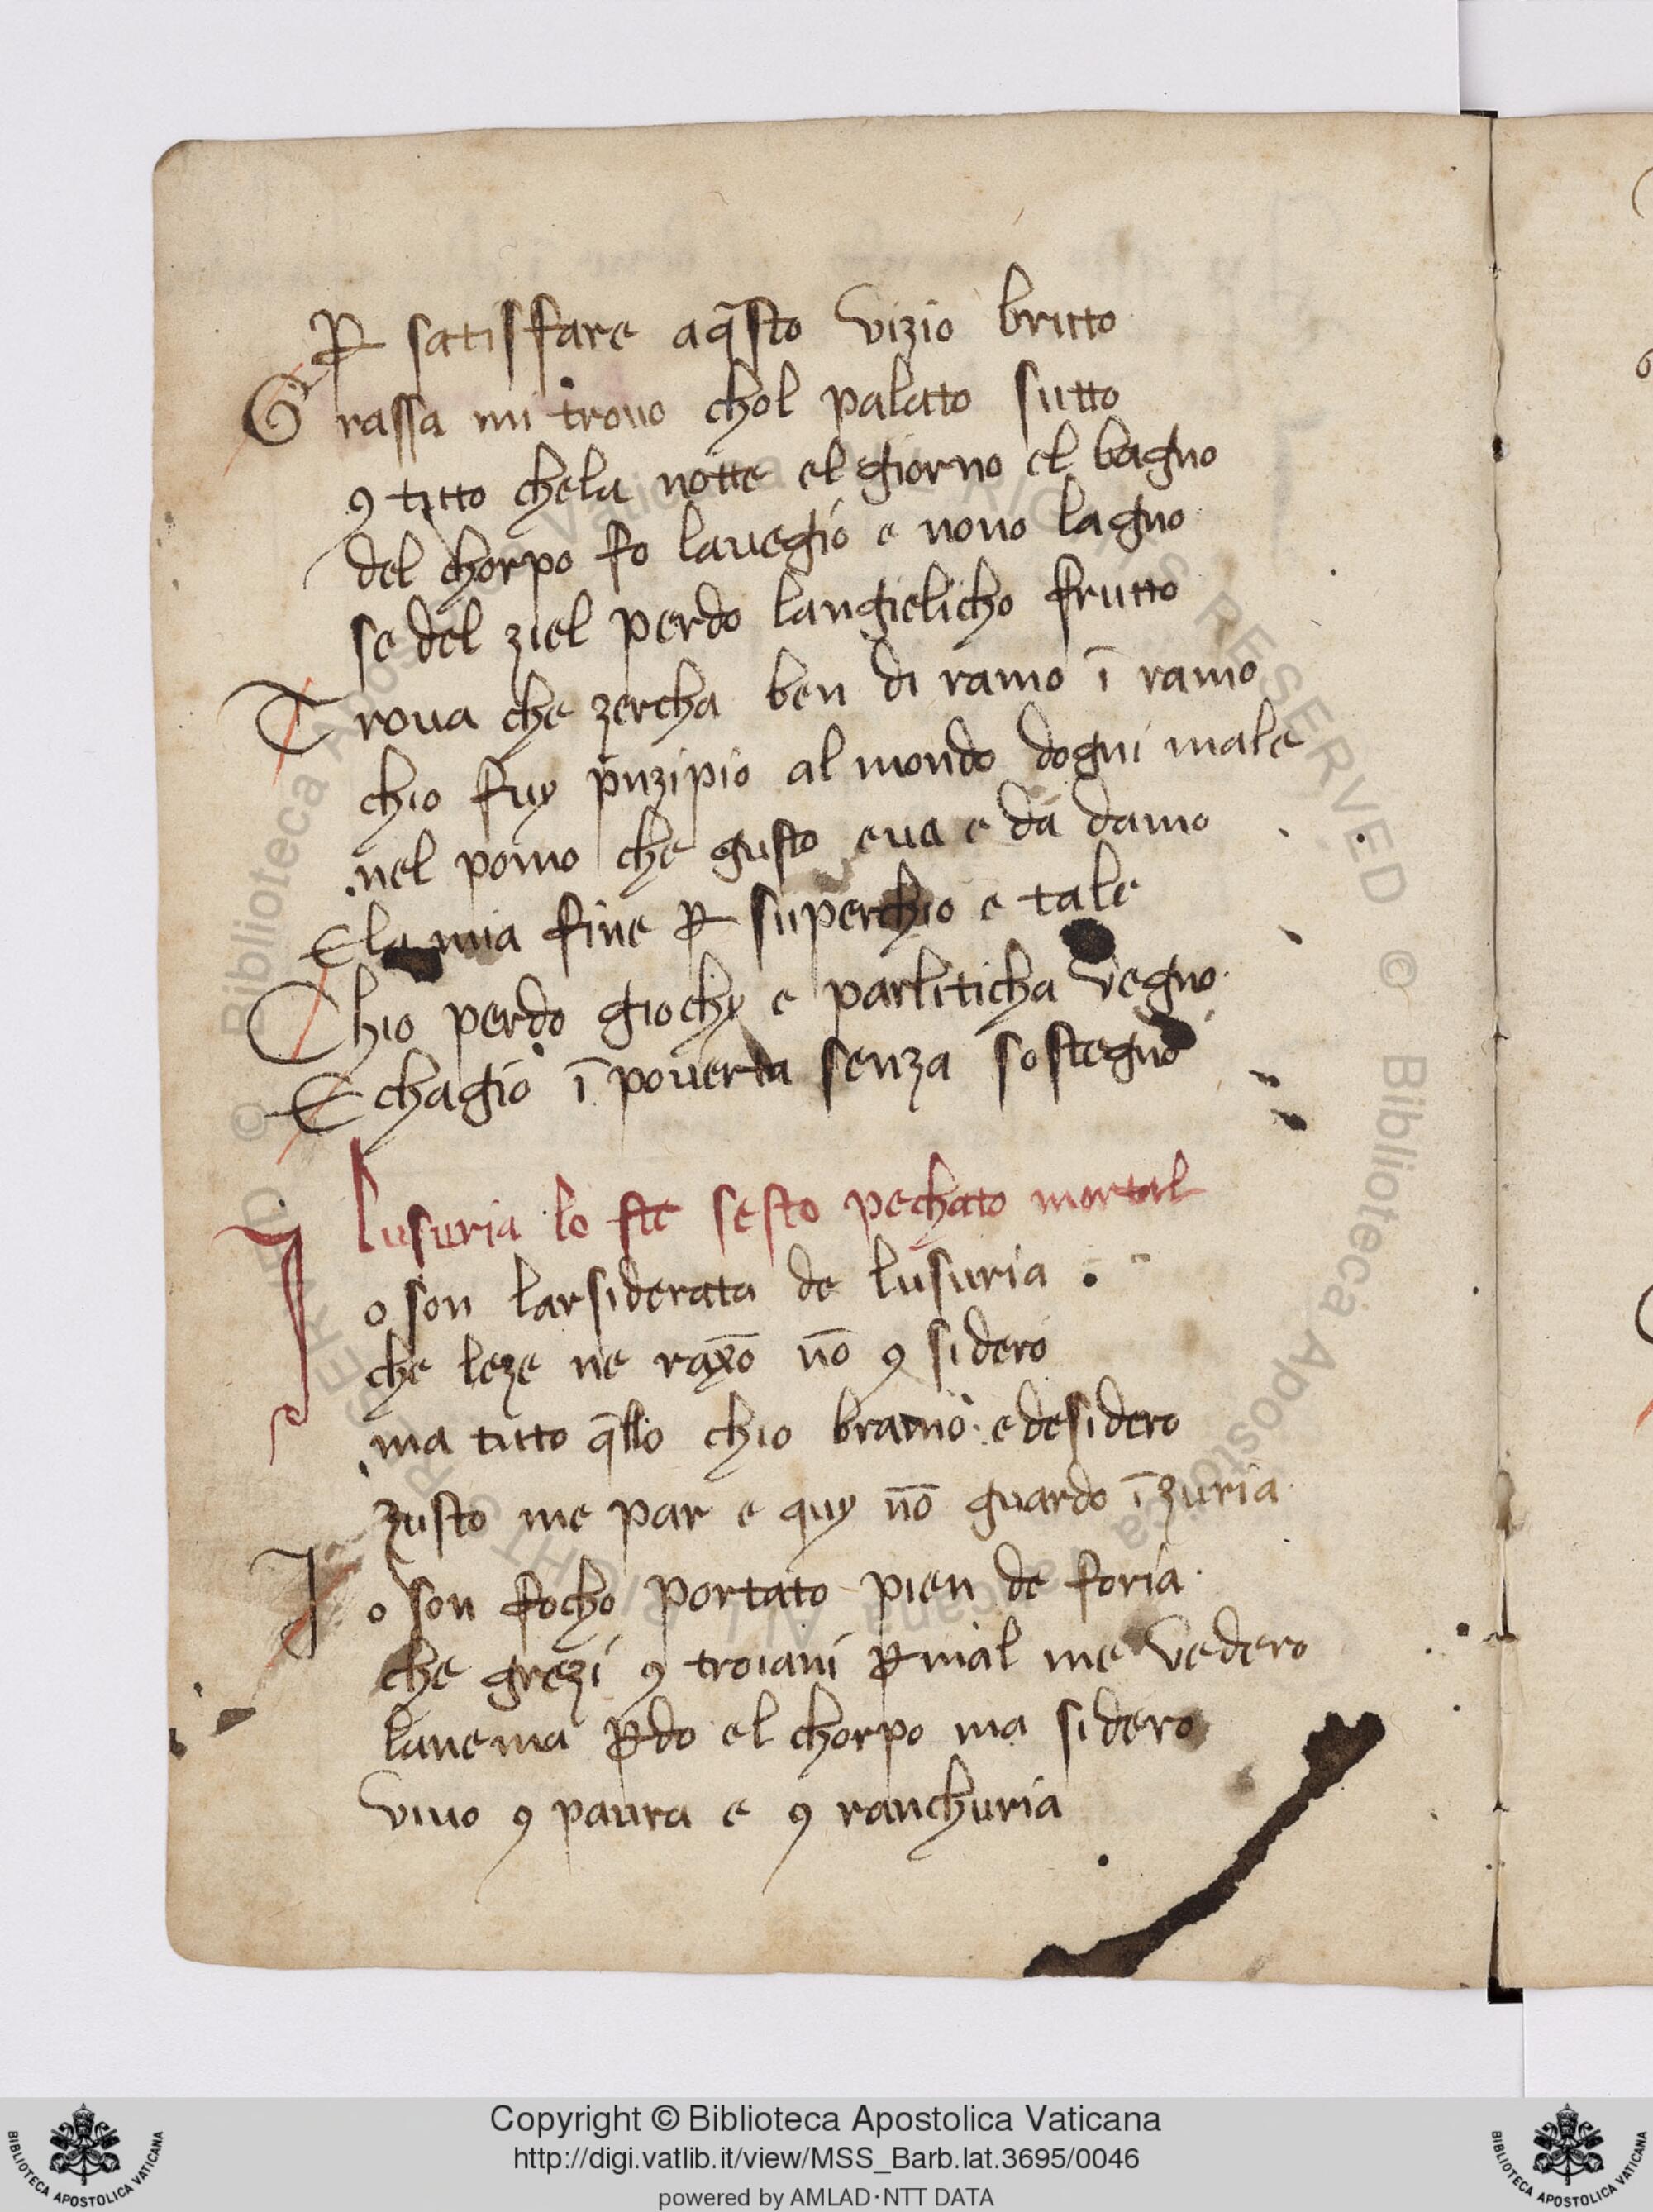 ꝑ satisfare aq̄sto vizio britto
Grassa mi trouo chol palato sutto
ꝯ tutto chela notte el giorno el bagno
del chorpo fo lauegio e nono lagno
se del ziel perdo langielicho frutto
Troua che zercha ben di ramo ī ramo
chio fuy pͥnzipio al mondo dogni male
nel pomo che gusto eua e da damo
E la mia fine ꝑ superchio e tale
Chio perdo giochy e parliticha vegno
E chagio ī pouerta senza sostegno
lusuria lo ste sesto pechato mortal
Io son larsiderata de lusuria
che leze ne raxō nō ꝯ sidero
ma tutto q̄llo chio bramo e desidero
zusto me par e quy nō guardo ī zuria
Io son focho portato pien de foria
che grezi ꝯ troiani ꝑ mal me vedero
lanema ꝑdo el chorpo ma sidero
viuo ꝯ paura e ꝯ ranchuria
© Biblioteca Apostolica Vaticana ALL RIGHTS RESERVED
Copyright © Biblioteca Apostolica Vaticana
http://digi.vatlib.it/view/MSS_Barb.lat.3695/0046
powered by AMLAD·NTT DATA
BIBLIOTECA APOSTOLICA VATICANA
BIBLIOTECA APOSTOLICA VATICANA